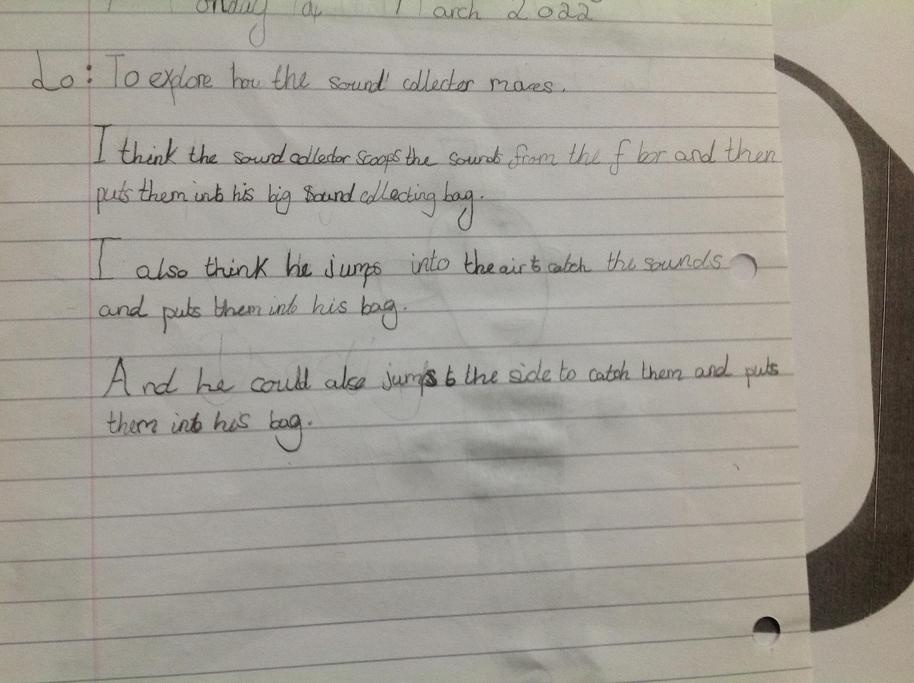 March 2022
Lo: To explore how the sound collector moves.
I think the sound collector scoops the sounds from the floor and then
puts them into his big sound collecting bag.
I also think he jumps into the air to catch the sounds
and puts them into his bag.
And he could also jumps to the side to catch them and puts
them into his bag.